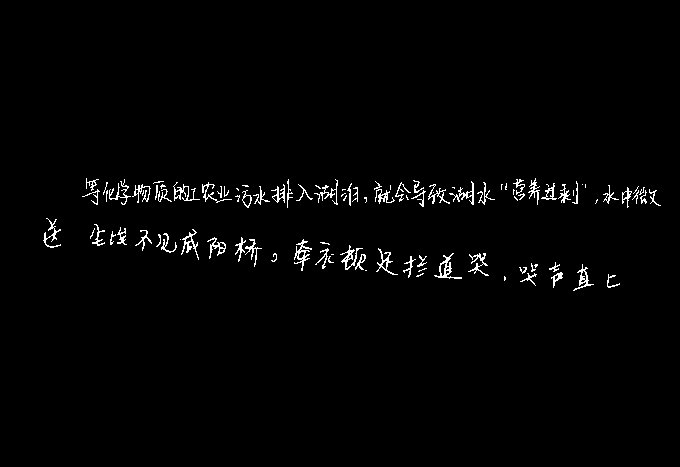 等化学物质的工农业污水排入湖泊,就会导致湖水“营养过剩”,水中微
送 尘埃不见咸阳桥。牵衣顿足拦道哭,哭声直上